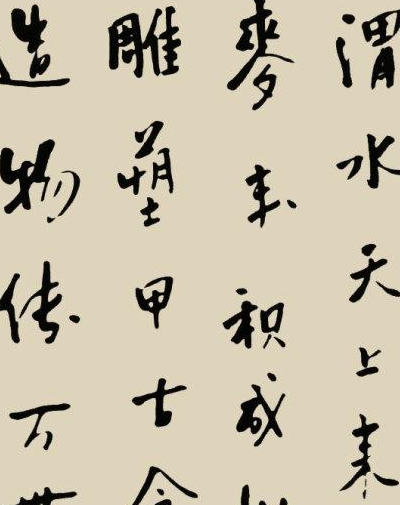 渭水天上来
麥积成
雕塑甲古今
造物传万